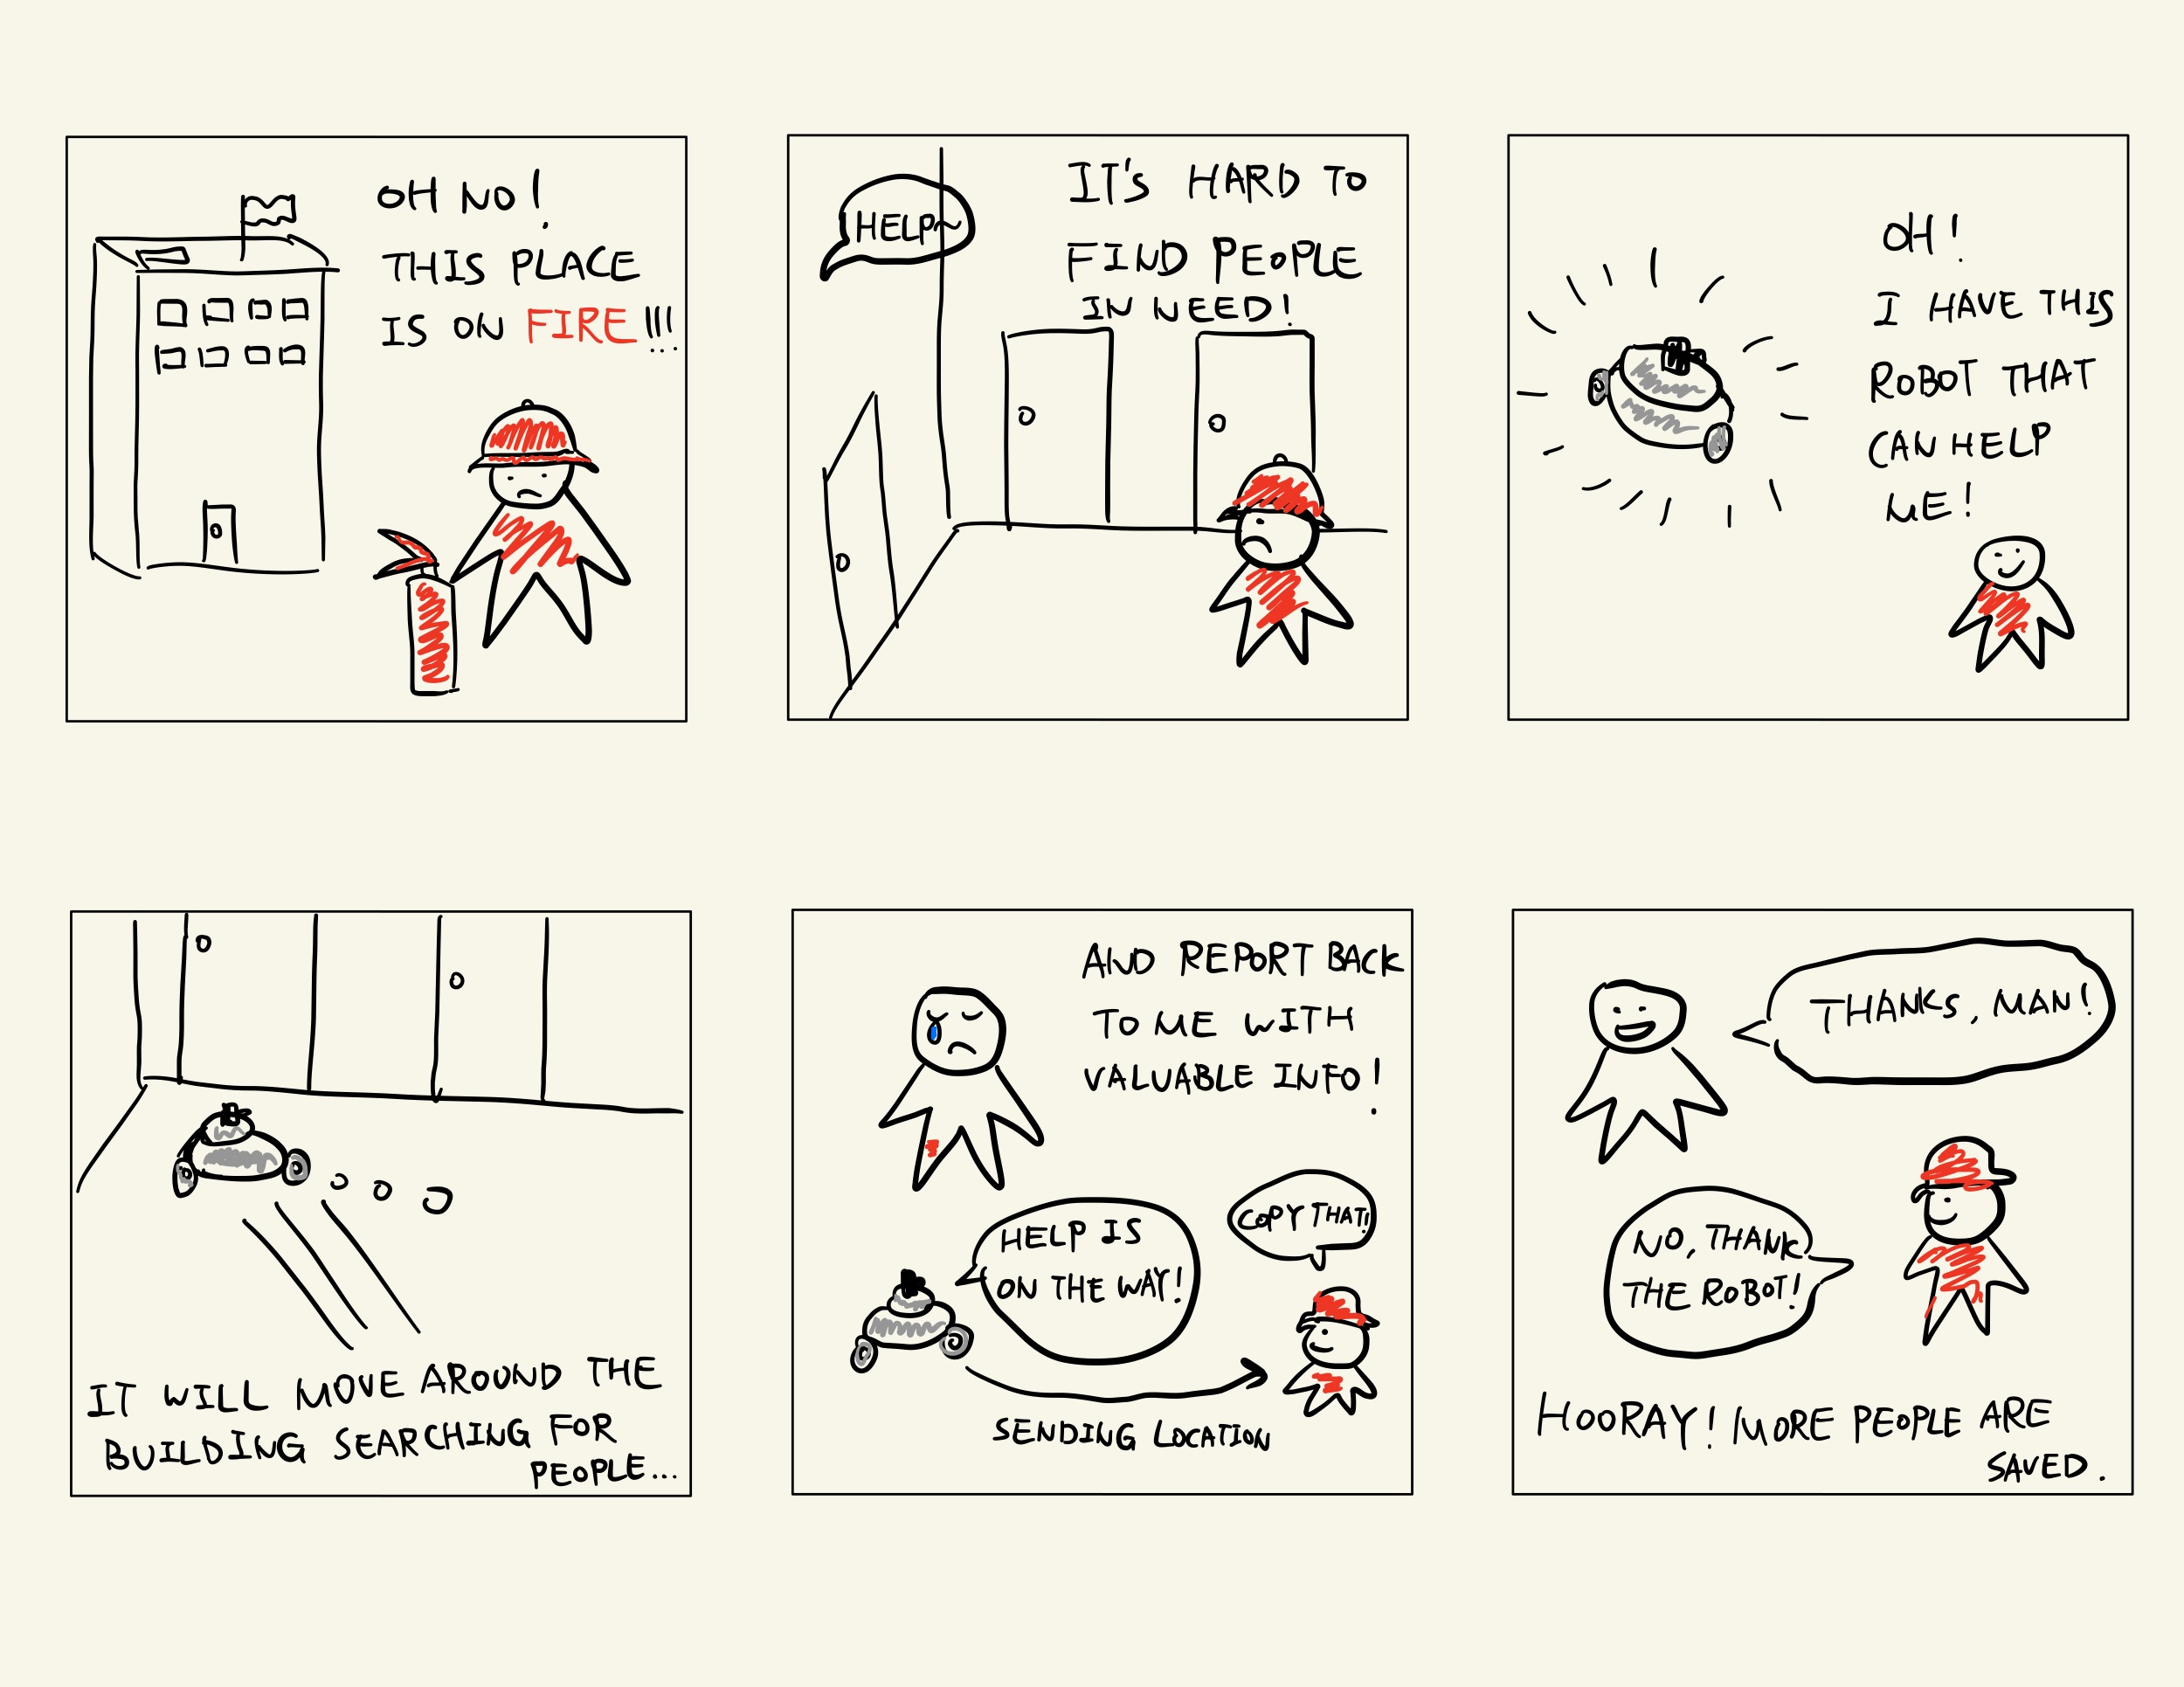 OH NO!
THIS PLACE
IS ON FIRE!!!
HELP~
IT'S HARD TO
FIND PEOPLE
IN NEED!
OH!
I HAVE THIS
ROBOT THAT
CAN HELP
ME!
IT WILL MOVE AROUND THE
BUILDING SEARCHING FOR
PEOPLE...
AND REPORT BACK
TO ME WITH
VALUABLE INFO!
HELP IS
ON THE WAY!
COPY THAT!
SENDING LOCATION
THANKS, MAN!
NO, THANK
THE ROBOT!
HOORAY! MORE PEOPLE ARE
SAVED.